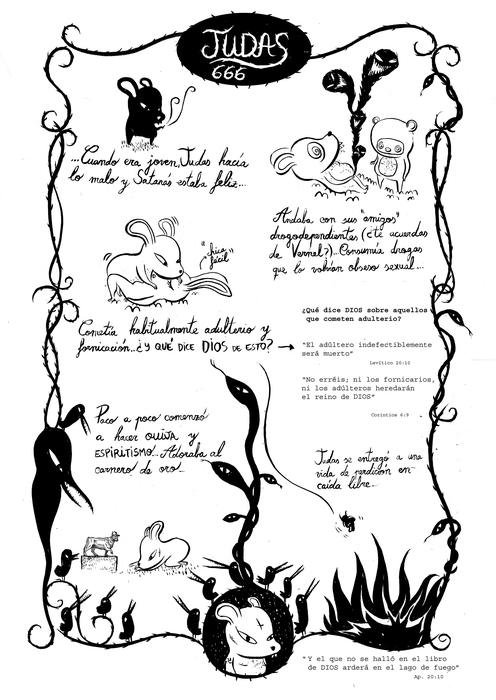 JUDAS
666
...Cuando era joven, Judas hacía
lo malo y Satanás estaba feliz...
Andaba con sus "amigos"
drogodependientes (¿te acuerdas
de Vernal?)...Consumía drogas
que lo volvían obseso sexual...
"chica
fácil"
Cometía habitualmente adulterio y
fornicación...¿Y QUÉ DICE DIOS DE ESTO? →
¿Qué dice DIOS sobre aquellos
que cometen adulterio?
"El adúltero indefectiblemente
será muerto"
Levítico 20:10
"No erréis; ni los fornicarios,
ni los adúlteros heredarán
el reino de DIOS"
Corintios 6:9
Poco a poco comenzó
a hacer OUIJA y
ESPIRITISMO...Adoraba al
carnero de oro...
Judas se entregó a una
vida de perdición en
caída libre...
"Y el que no se halló en el libro
de DIOS arderá en el lago de fuego"
Ap. 20:10